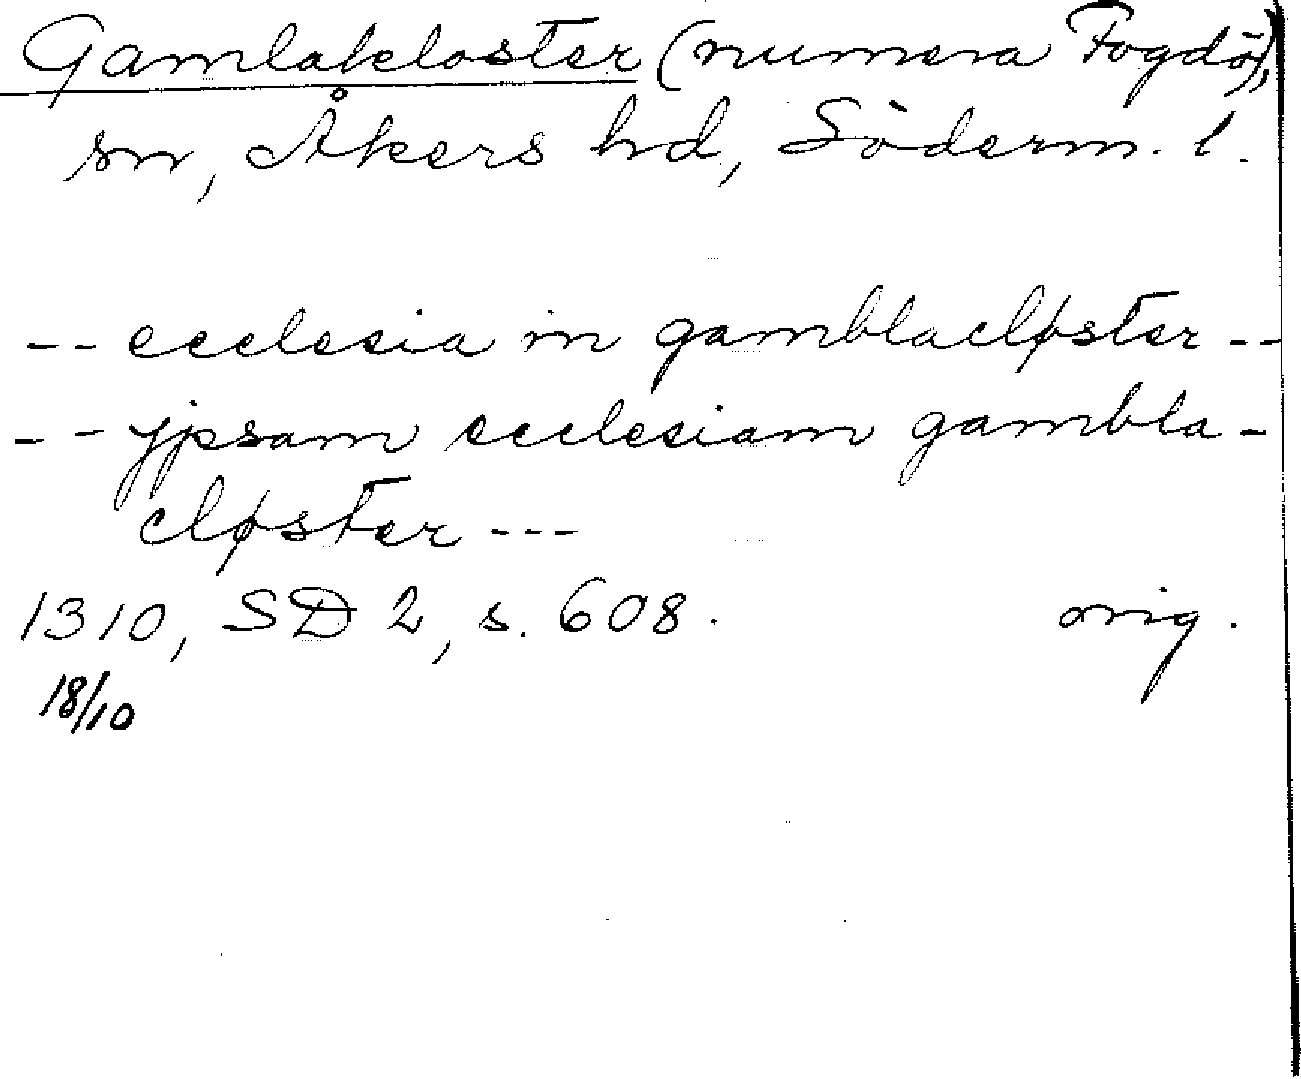 Gamlakloster (numera Fogdö),
sn, Åkers hd, Söderm. l.
-- ecclesia in gamblacløster --
-- yjpsam ecclesiam gambla-
cløster ---
1310, SD 2, s. 608. orig.
18/10